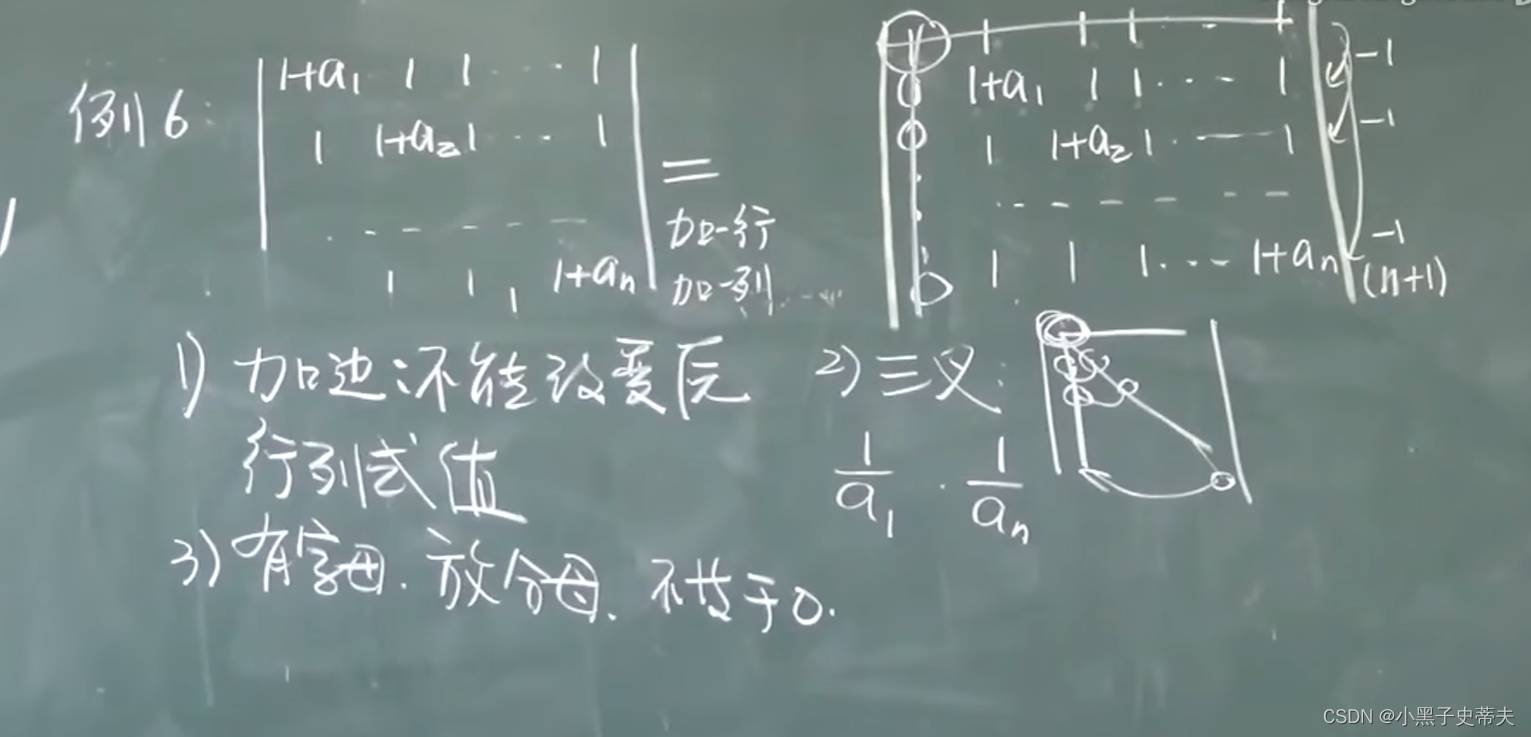 例6:
1+a₁ 1 1 ··· 1
1 1+a₂ 1 ··· 1
1 1 1 1+aₙ
=
加一行
加一列
1 1 1 1
0 1+a₁ 1 1 ··· 1
0 1 1+a₂ 1 1
0 1 1 1 ··· 1+aₙ
-1
-1
-1
(n+1)
1) 加边:不能改变原
行列式值
2) 三叉:
1/a₁ · 1/aₙ
3) 有字母. 放分母. 不等于0.
CSDN @小黑子史蒂夫